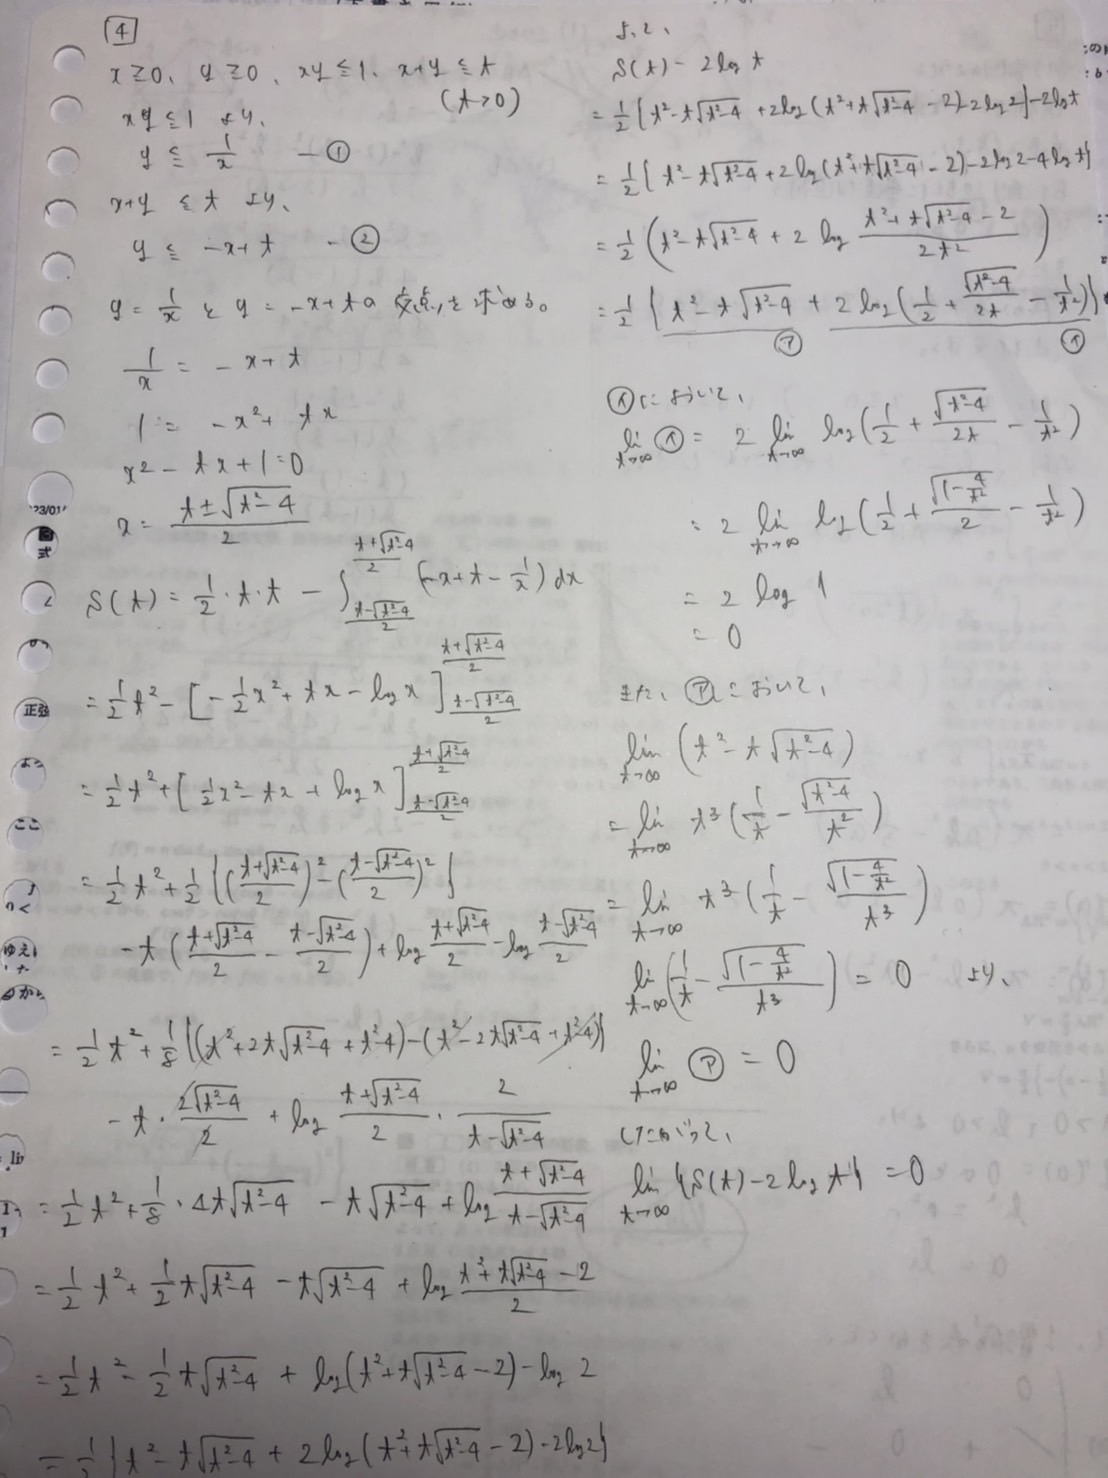 4
x≧0、y≧0、xy≦1、x+y≦t
(t>0)
xy≦1 より、
y≦1/x －①
x+y≦t より、
y≦-x+t －②
y=1/x と y=-x+tの交点を求める。
1/x=-x+t
1=-x²+tx
x²-tx+1=0
x=(t±√(t²-4))/2
S(t)=1/2・t・t-∫_{(t-√(t²-4))/2}^{(t+√(t²-4))/2}(-x+t-1/x)dx
=1/2t²-[-1/2x²+tx-log x]_{(t-√(t²-4))/2}^{(t+√(t²-4))/2}
=1/2t²+[1/2x²-tx+log x]_{(t-√(t²-4))/2}^{(t+√(t²-4))/2}
=1/2t²+1/2{((t+√(t²-4))/2)²-((t-√(t²-4))/2)²}
-t((t+√(t²-4))/2-(t-√(t²-4))/2)+log (t+√(t²-4))/2-log (t-√(t²-4))/2
=1/2t²+1/8{(t²+2t√(t²-4)+t²-4)-(t²-2t√(t²-4)+t²-4)}
-t・2√(t²-4)/2+log (t+√(t²-4))/2・2/(t-√(t²-4))
=1/2t²+1/8・4t√(t²-4)-t√(t²-4)+log (t+√(t²-4))/(t-√(t²-4))
=1/2t²+1/2t√(t²-4)-t√(t²-4)+log (t²+t√(t²-4)-2)/2
=1/2t²-1/2t√(t²-4)+log(t²+t√(t²-4)-2)-log 2
=1/2{t²-t√(t²-4)+2log(t²+t√(t²-4)-2)-2log2}
よって、
S(t)-2log t
=1/2{t²-t√(t²-4)+2log(t²+t√(t²-4)-2)-2log2}-2log t
=1/2{t²-t√(t²-4)+2log(t²+t√(t²-4)-2)-2log2-4log t}
=1/2(t²-t√(t²-4)+2log (t²+t√(t²-4)-2)/2t²)
=1/2{t²-t√(t²-4)+2log(1/2+√(t²-4)/2t-1/t²)}
㋐ ㋑
㋑において、
lim_{t→∞}㋑=2lim_{t→∞} log(1/2+√(t²-4)/2t-1/t²)
=2lim_{t→∞} log(1/2+√(1-4/t²)/2-1/t²)
=2log 1
=0
また、㋐において、
lim_{t→∞}(t²-t√(t²-4))
=lim_{t→∞} t³(1/t-√(t²-4)/t²)
=lim_{t→∞} t³(1/t-√(1-4/t²)/t³)
lim_{t→∞}(1/t-√(1-4/t²)/t³)=0 より、
lim_{t→∞}㋐=0
したがって、
lim_{t→∞}{S(t)-2log t}=0